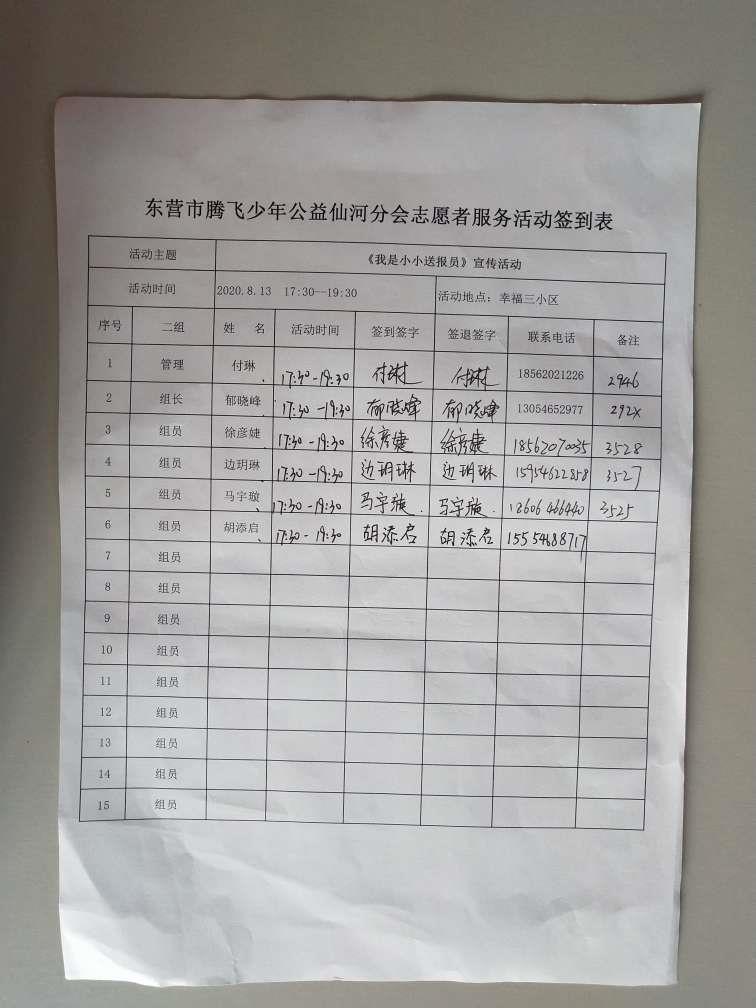 东营市腾飞少年公益仙河分会志愿者服务活动签到表
活动主题 《我是小小送报员》宣传活动
活动时间 2020.8.13 17:30--19:30 活动地点：幸福三小区
序号 二组 姓 名 活动时间 签到签字 签退签字 联系电话 备注
1 管理 付琳 17:30-19:30 付琳 付琳 18562021226 2946
2 组长 郁晓峰 17:30-19:30 郁晓峰 郁晓峰 13054652977 292X
3 组员 徐彦婕 17:30-19:30 徐彦婕 徐彦婕 18562070035 3528
4 组员 边玥琳 17:30-19:30 边玥琳 边玥琳 15954622858 3527
5 组员 马宇璇 17:30-19:30 马宇璇. 马宇璇. 18606466440 3525
6 组员 胡添启 17:30-19:30 胡添启 胡添启 15554688717
7 组员
8 组员
9 组员
10 组员
11 组员
12 组员
13 组员
14 组员
15 组员